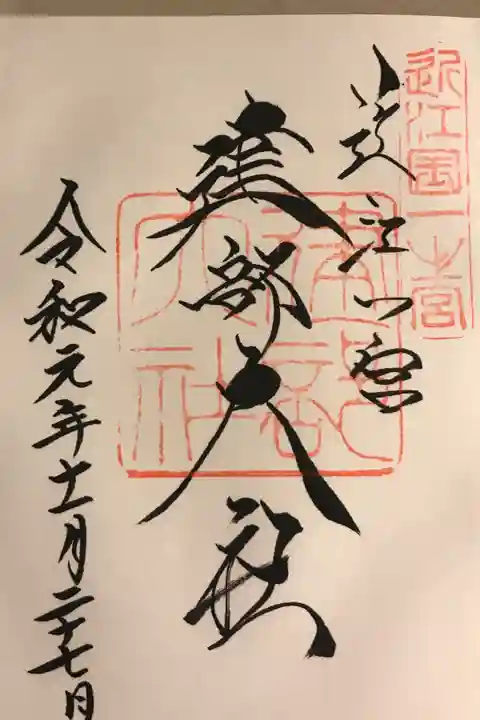 近江国一之宮
近江一宮
建部大社
建部大社
令和元年十一月二十七日